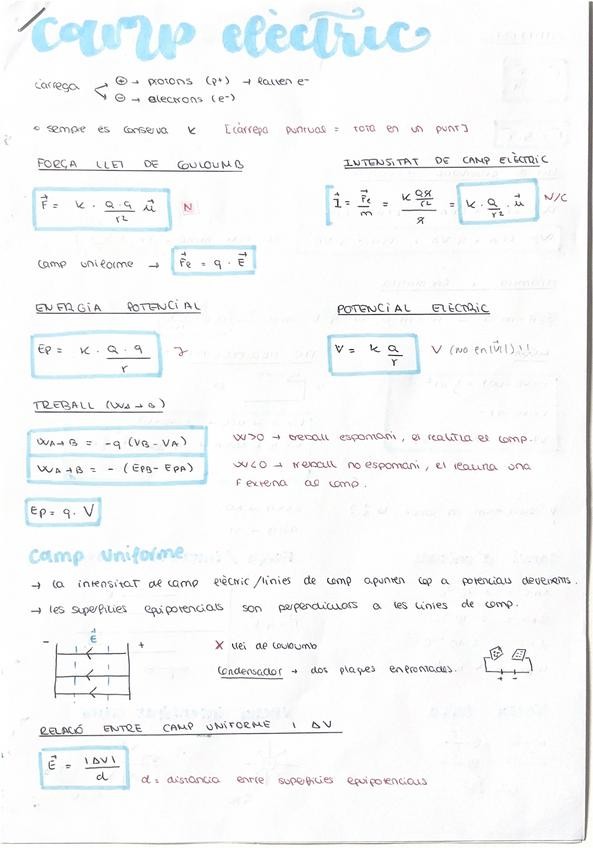 camp elèctric
càrrega
⊕ → protons (p+) → falten e-
⊖ → electrons (e-)
° sempre es conserva K [càrrega puntual = tota en un punt]
FORÇA LLEI DE COULOUMB
INTENSITAT DE CAMP ELÈCTRIC
F⃗ = K · Q · q / r² u⃗ N
I⃗ = F⃗e / m = K Qq / r² / q = K · Q / r² · u⃗ N/C
camp uniforme → F⃗e = q · E⃗
ENERGIA POTENCIAL
POTENCIAL ELÈCTRIC
Ep = K · Q · q / r J
V = K Q / r V (no en |V|)!!
TREBALL (WA→B)
WA→B = -q (VB - VA)
W>0 → treball espontani, el realitza el camp.
WA→B = - (EPB - EPA)
W<0 → treball no espontani, el realitza una
F externa al camp.
Ep = q · V
camp uniforme
→ la intensitat de camp elèctric/línies de camp apunten cap a potencials decreixents.
→ les superfícies equipotencials són perpendiculars a les línies de camp.
- E⃗ +
X llei de couloumb
condensador → dos plaques enfrontades.
+ -
RELACIÓ ENTRE CAMP UNIFORME I ΔV
E⃗ = |ΔV| / d
d = distància entre superfícies equipotencials